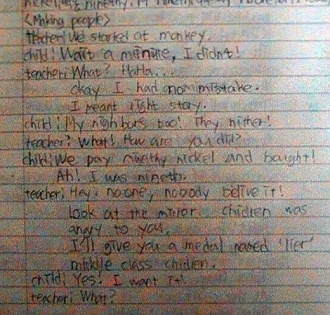 <Making people>
teacher: We started at monkey.
child: Wait a minune, I didn't!
teacher: What? Haha...
okay I had nommistake.
I meant right stay.
child: My nighbors too! They nither!
teacher: What! How are you did?
child: We pay ninethy nickel and bought!
Ah! I was nineth.
teacher: Hey. noone, nobody belive it!
Look at the mirror.. chidren was
angy to you.
I'll give you a medal named 'lier'
middle class chidren.
child: Yes! I want it!
teacher: What?